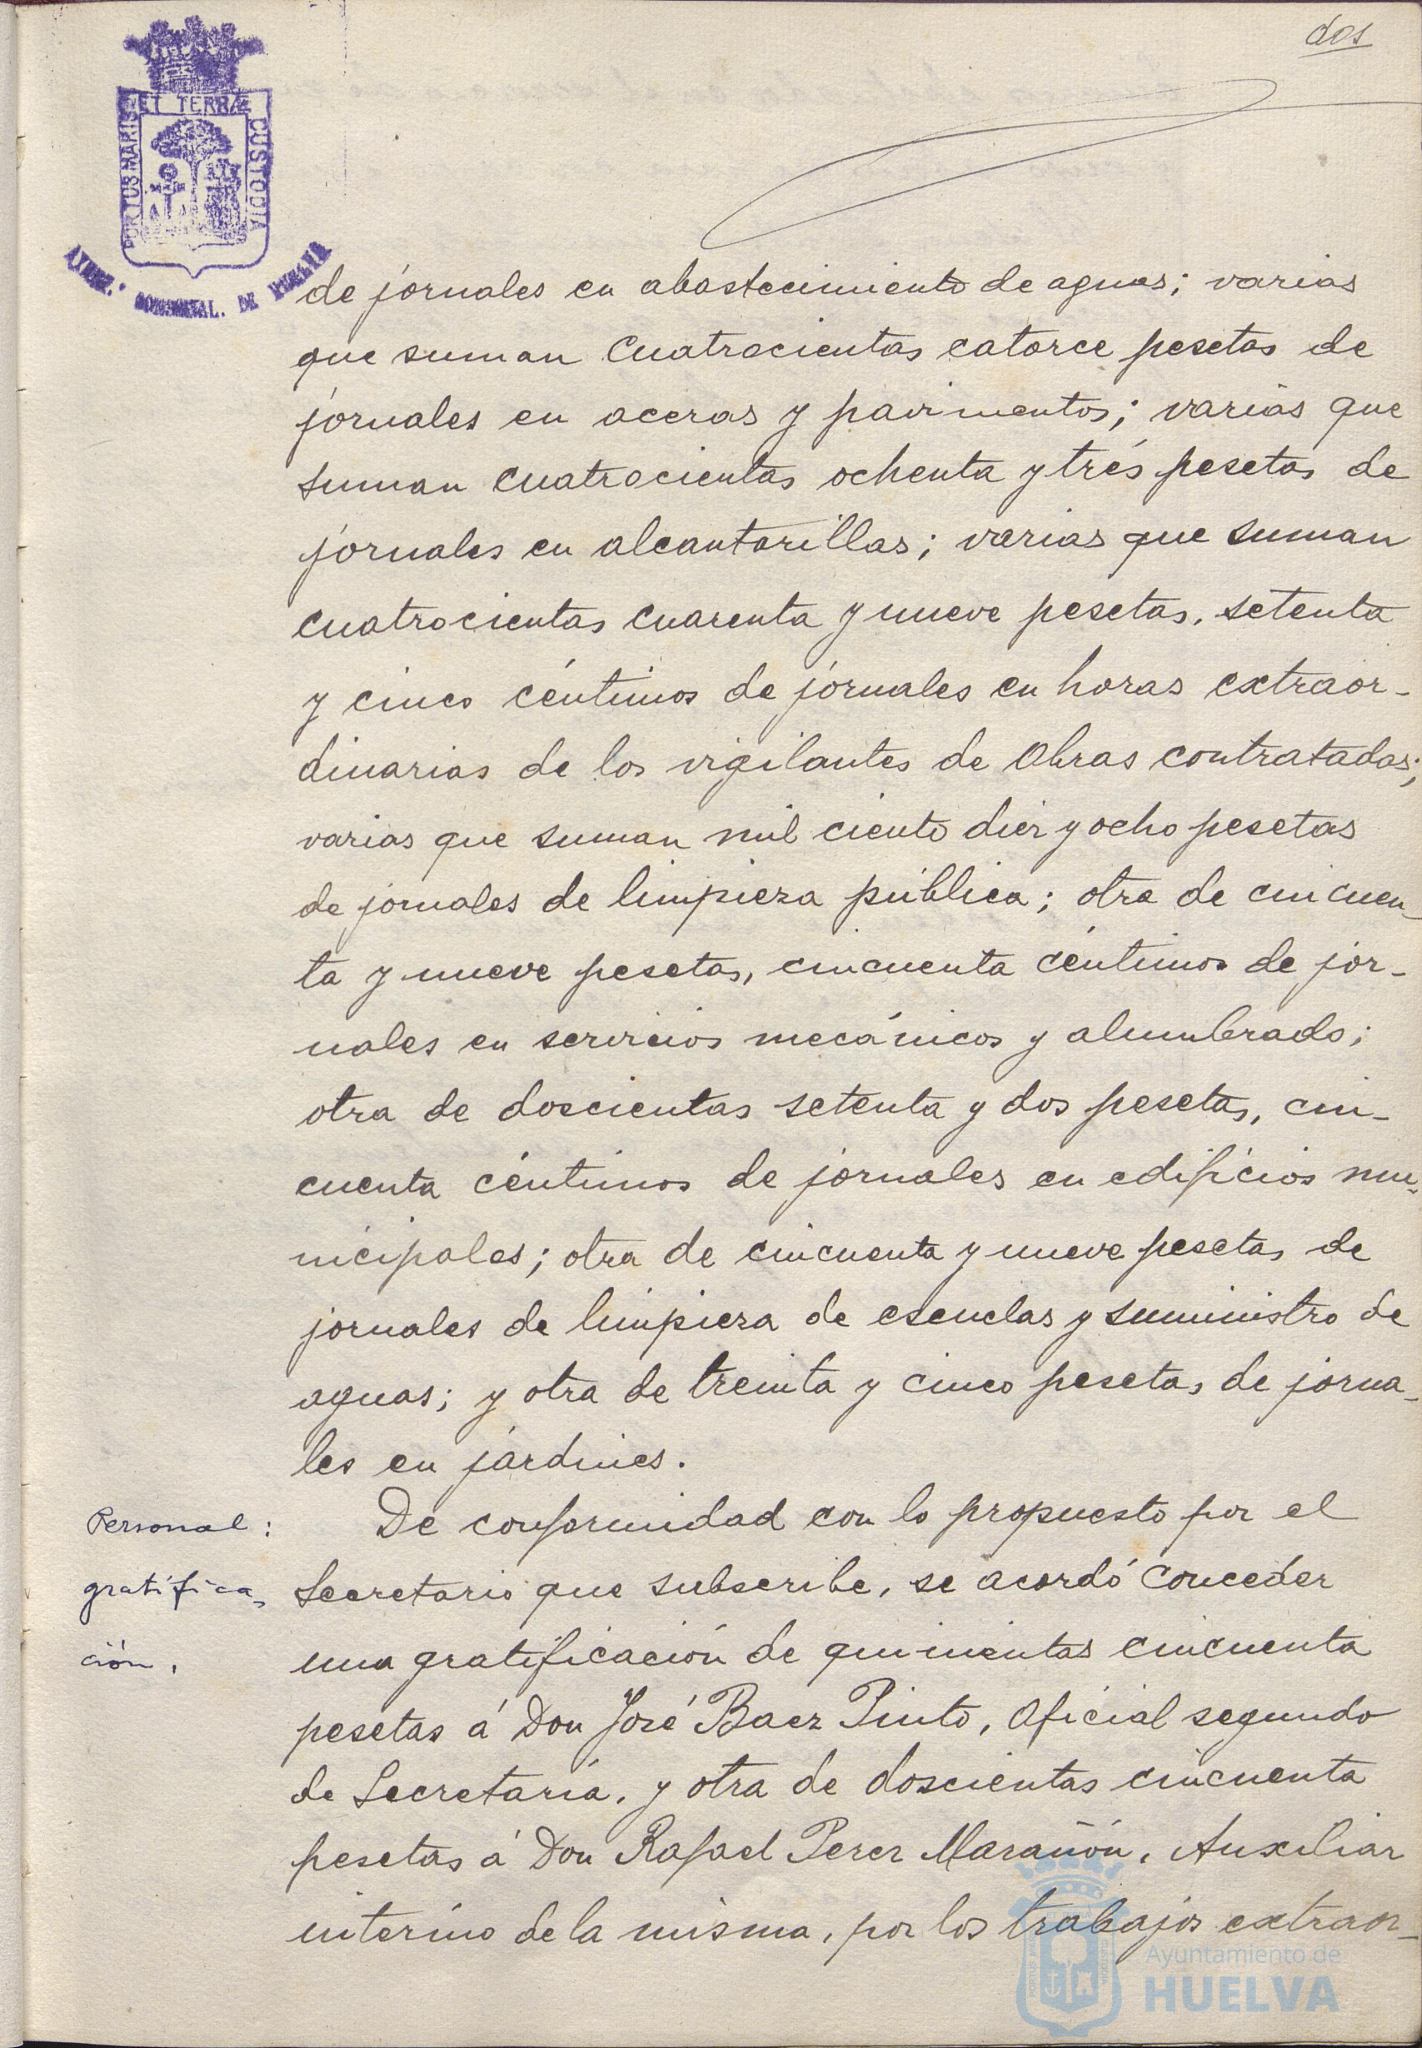 dos
PORTUS MARIS ET TERRÆ CUSTODIA
DE HUELVA
de jornales en abastecimiento de aguas; varias
que suman cuatrocientas catorce pesetas de
jornales en aceras y pavimentos; varias que
suman cuatrocientas ochenta y trés pesetas de
jornales en alcantarillas; varias que suman
cuatrocientas cuarenta y nueve pesetas, setenta
y cinco céntimos de jornales en horas extraor-
dinarias de los vigilantes de Obras contratadas;
varias que suman mil ciento diez y ocho pesetas
de jornales de limpieza pública; otra de cincuen-
ta y nueve pesetas, cincuenta céntimos de jor-
nales en servicios mecánicos y alumbrado;
otra de doscientas setenta y dos pesetas, cin-
cuenta céntimos de jornales en edificios mu-
nicipales; otra de cincuenta y nueve pesetas de
jornales de limpieza de escuelas y suministro de
aguas; y otra de treinta y cinco pesetas de jorna-
les en jardines.
Personal:
gratifica-
ción.
De conformidad con lo propuesto por el
Secretario que subscribe, se acordó conceder
una gratificación de quinientas cincuenta
pesetas á Don José Baez Pinto, Oficial segundo
de Secretaría, y otra de doscientas cincuenta
pesetas á Don Rafael Perez Marañón, Auxiliar
interino de la misma, por los trabajos extraor-
Ayuntamiento de
HUELVA